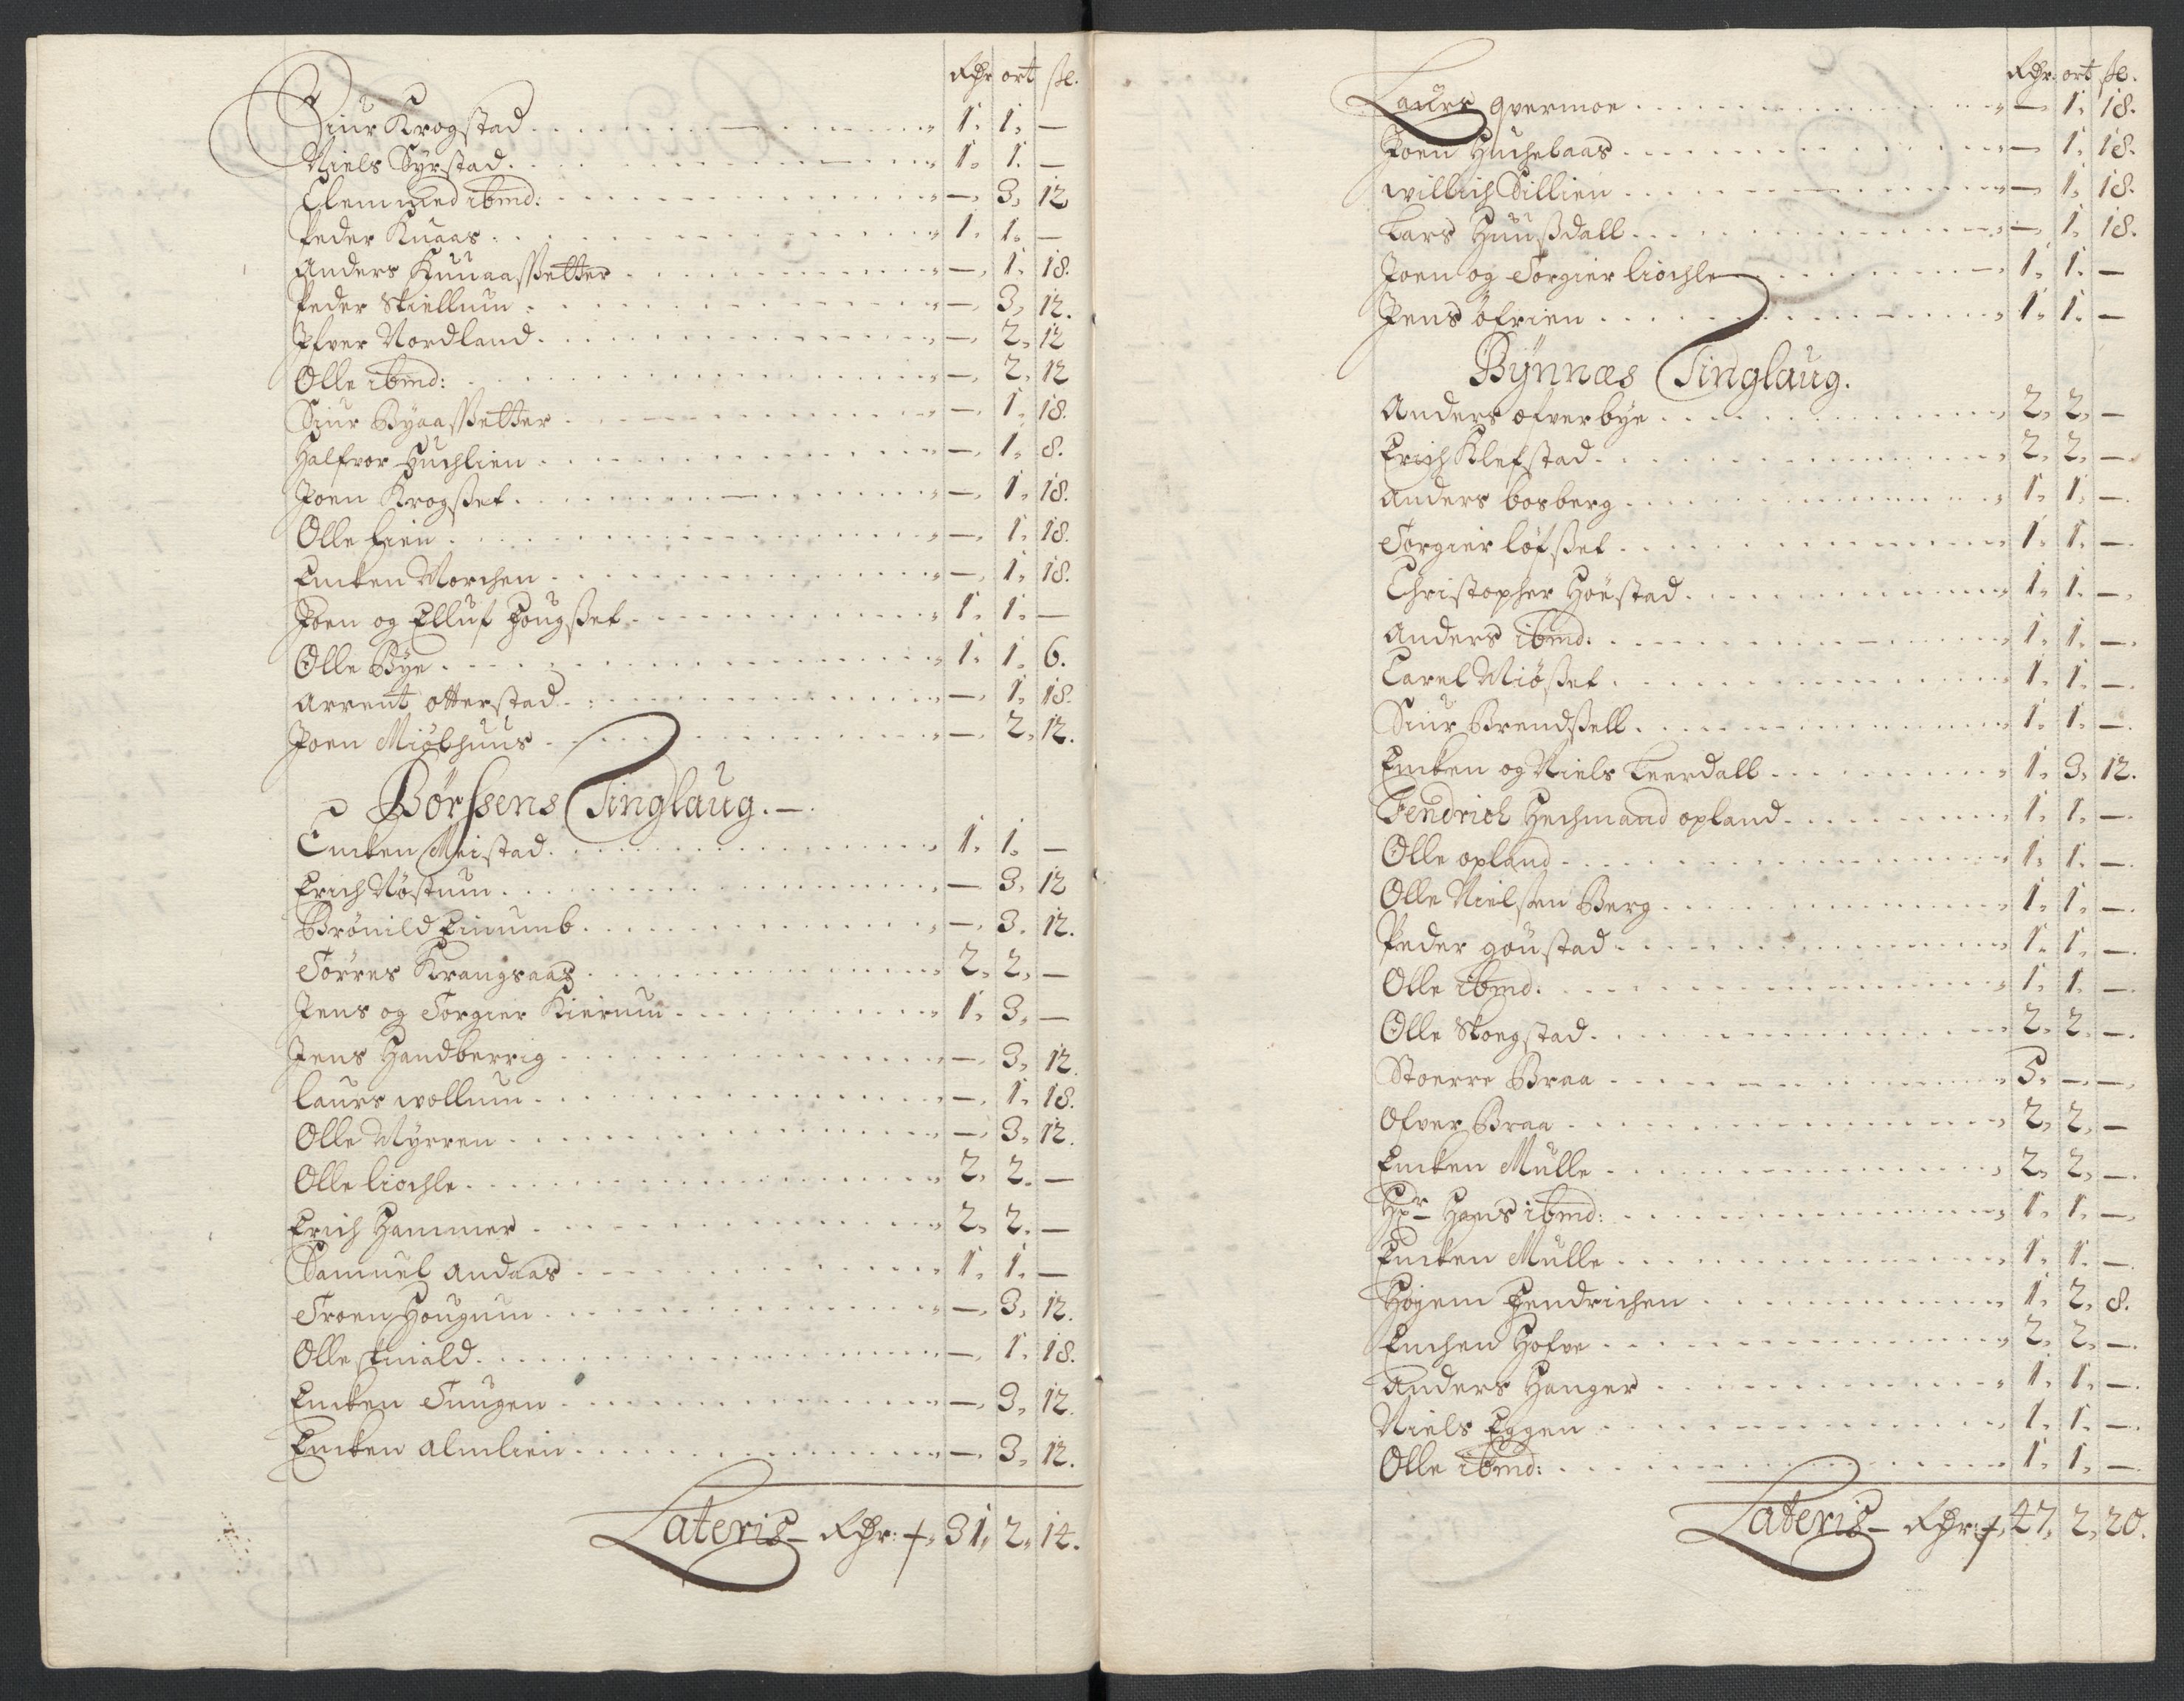 Rdr ort sc.
Siur Krogstad 1. 1. —
Niels Byrstad 1. 1. —
Clemmed ibmd: — 3. 12
Peder Knaas 1. 1. —
Anders Knuaassetter — 1. 18.
Peder Skiellnun — 3. 12.
Ifver Nordland — 2. 12
Olle ibmd: — 2. 12
Siur Byaassetter — 1. 18.
Halfvor Huchlien — 1. 8.
Joen Krogsset — 1. 18.
Olle Lien — 1. 18.
Encken Norchen — 1. 18.
Joen og Elluf Hougsset 1. 1. —
Olle Bye 1. 1. 6.
Arrent otterstad — 1. 18.
Joen Miølhuus — 2. 12.
Børssens Tinglaug.
Encken Meistad 1. 1. —
Erich Nøstnun — 3. 12
Brönild Einumb — 3. 12.
Torres Krangsaas 2. 2. —
Jens og Torgier Kiernun 1. 3. —
Jens Handberrig — 3. 12.
Laurs wollnun — 1. 18.
Olle Myrren — 3. 12.
Olle liochle 2. 2. —
Erich Hammer 2. 2. —
Samuel andaas 1. 1. —
Troen Hougnun — 3. 12.
Olle snuald — 1. 18.
Encken Tuugen — 3. 12.
Encken almlien — 3. 12.
Lateris Rdr: 31. 2. 14.
Rdr: ort sc.
Laurs qvermoe — 1. 18.
Joen Huchelaas — 1. 18.
willich Sillien — 1. 18.
Lars Huussdall — 1. 18.
Joen og Torgier liochle 1. 1. —
Jens öfrien 1. 1. —
Bynnæs Tinglaug.
Anders ofverbye 2. 2. —
Erich Klefstad 2. 2. —
Anders bosberg 1. 1. —
Torgier löfsset 1. 1. —
Christopher Höustad 1. 1. —
Anders ibmd: 1. 1. —
Carel Miösset 1. 1. —
Siur Brendssell 1. 1. —
Encken og Niels Leerdall 1. 3. 12.
Hendrich Hechmand opland 1. 1. —
Olle opland 1. 1. —
Olle Nielssen Berg 1. 1. —
Peder goustad 1. 1. —
Olle ibmd: 1. 1. —
Olle Skogstad 2. 2. —
Stoerre Braa 5. — —
Ofver Braa 2. 2. —
Encken Mulle 2. 2. —
Hr Hans ibmd: 1. 1. —
Encken Mulle 1. 1. —
Höyem Hendrichen 1. 2. 8.
Enchen Hofve 2. 2. —
Anders Hanger 1. 1. —
Niels Eggen 1. 1. —
Olle ibmd: 1. 1. —
Lateris Rdr: 47. 2. 20.